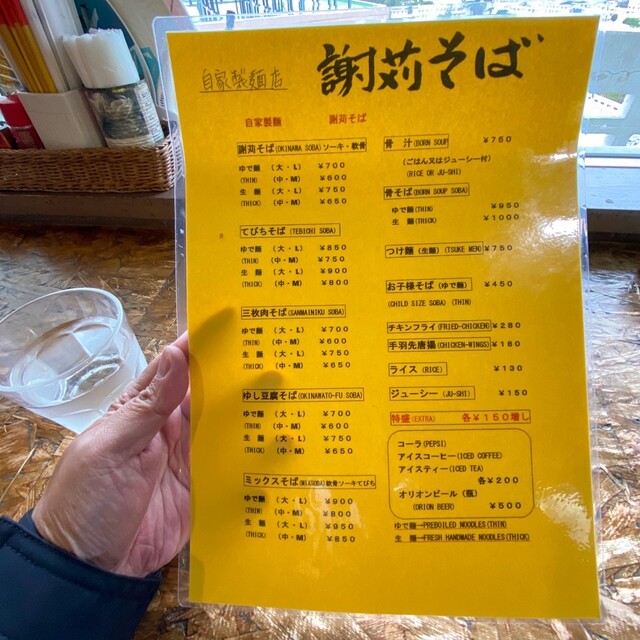 自家製麺店
謝苅そば
自家製麺 謝苅そば
謝苅そば(OKINAWA SOBA)ソーキ・軟骨
ゆで麺 (大・L) ¥700
(THIN) (中・M) ¥600
生 麺 (大・L) ¥750
(THICK) (中・M) ¥650
てびちそば(TEBICHI SOBA)
ゆで麺 (大・L) ¥850
(THIN) (中・M) ¥750
生 麺 (大・L) ¥900
(THICK) (中・M) ¥800
三枚肉そば(SANMAINIKU SOBA)
ゆで麺 (大・L) ¥700
(THIN) (中・M) ¥600
生 麺 (大・L) ¥750
(THICK) (中・M) ¥650
ゆし豆腐そば(OKINAWATO-FU SOBA)
ゆで麺 (大・L) ¥700
(THIN) (中・M) ¥600
生 麺 (大・L) ¥750
(THICK) (中・M) ¥650
ミックスそば(MIXSOBA)軟骨ソーキてびち
ゆで麺 (大・L) ¥900
(THIN) (中・M) ¥800
生 麺 (大・L) ¥950
(THICK) (中・M) ¥850
骨 汁(BORN SOUP) ¥750
(ごはん又はジューシー付)
(RICE OR JU-SHI)
骨そば(BORN SOUP SOBA)
ゆで麺(THIN) ¥950
生 麺(THICK) ¥1000
つけ麺(生麺)(TSUKE MEN) ¥750
お子様そば(ゆで麺) ¥450
(CHILD SIZE SOBA) (THIN)
チキンフライ(FRIED-CHICKEN) ¥280
手羽先唐揚(CHICKEN-WINGS) ¥180
ライス(RICE) ¥130
ジューシー(JU-SHI) ¥150
特盛(EXTRA) 各¥150増し
コーラ(PEPSI)
アイスコーヒー(ICED COFFEE)
アイスティー(ICED TEA)
各¥200
オリオンビール(瓶)
(ORION BEER) ¥500
ゆで麺→PREBOILED NOODLES(THIN)
生 麺→FRESH HANDMADE NOODLES(THICK)